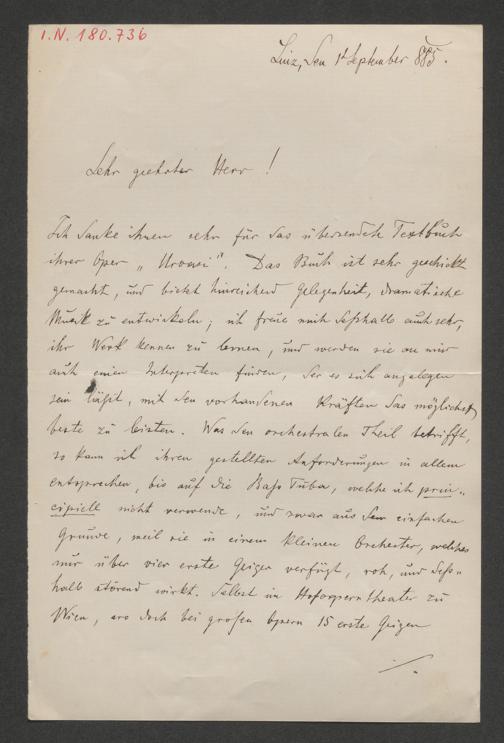 I.N. 180.736
Linz, den 1t September 885.
Sehr geehrter Herr!
Ich danke ihnen sehr für das übersendete Textbuch
ihrer Oper „ ". Das Buch ist sehr geschickt
gemacht, und bietet hinreichend Gelegenheit, dramatische
Musik zu entwickeln; ich freue mich deßhalb auch sehr,
ihr Werk kennen zu lernen, und werden sie an mir
auch einen Interpreten finden, der es sich angelegen
sein läßt, mit den vorhandenen Kräften das möglichst
beste zu leisten. Was den orchestralen Theil betrifft,
so kann ich ihren gestellten Anforderungen in allem
entsprechen, bis auf die Bass Tuba, welche ich prin„
cipiell nicht verwende, und zwar aus dem einfachen
Grunde, weil sie in einem kleinen Orchester, welches
nur über vier erste Geigen verfügt, roh, und deß„
halb störend wirkt. Selbst im Hofoperntheater zu
Wien, wo doch bei großen Opern 15 erste Geigen